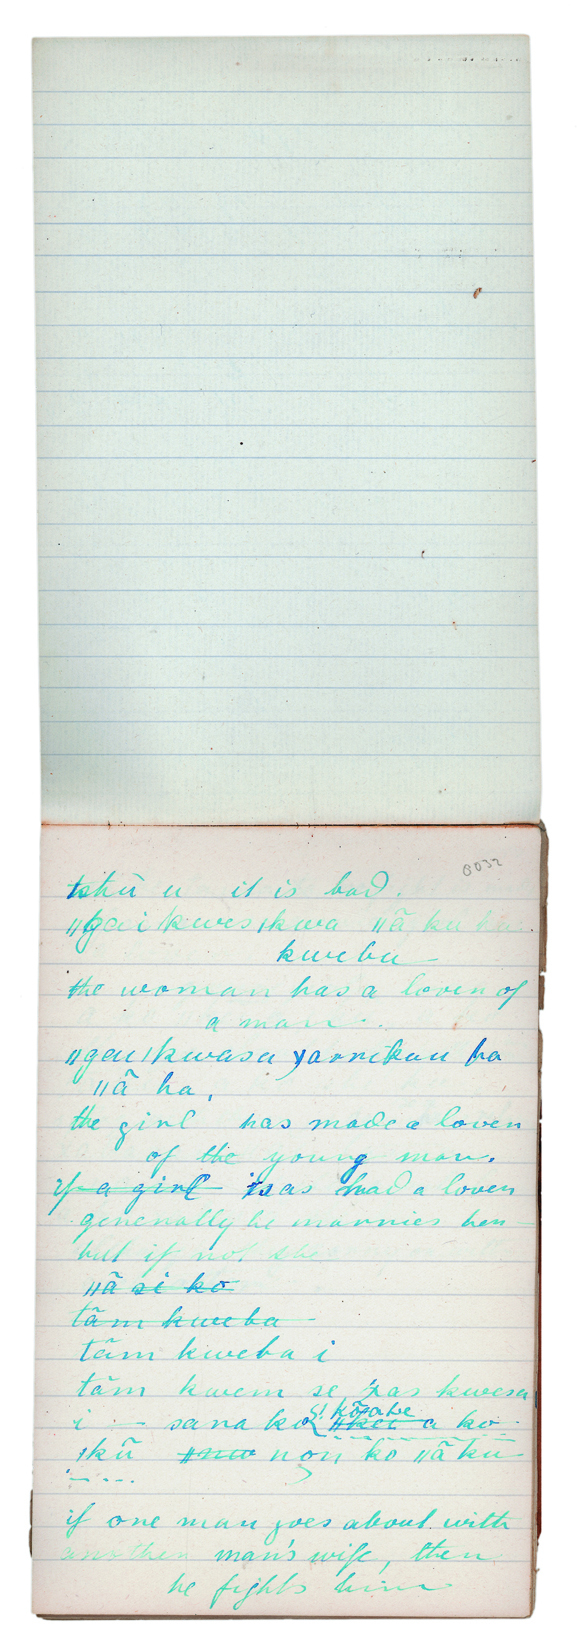 0032
tshū u it is bad.
ǁgaiǀkwesǀkwa ǁā ku ha
kweba
the woman has a lover of
a man.
ǁgaiǀkwasa ǯarrikau ha
ǁā ha,
the girl has made a lover
of the young man.
If a girl has had a lover
generally he marries her
but if not she
ǁā si ko
tām kweba
tām kweba i
tām kwem se
i sara ko
ǀkū nou ko ǁā ku
if one man goes about with
another man's wife, then
he fights him